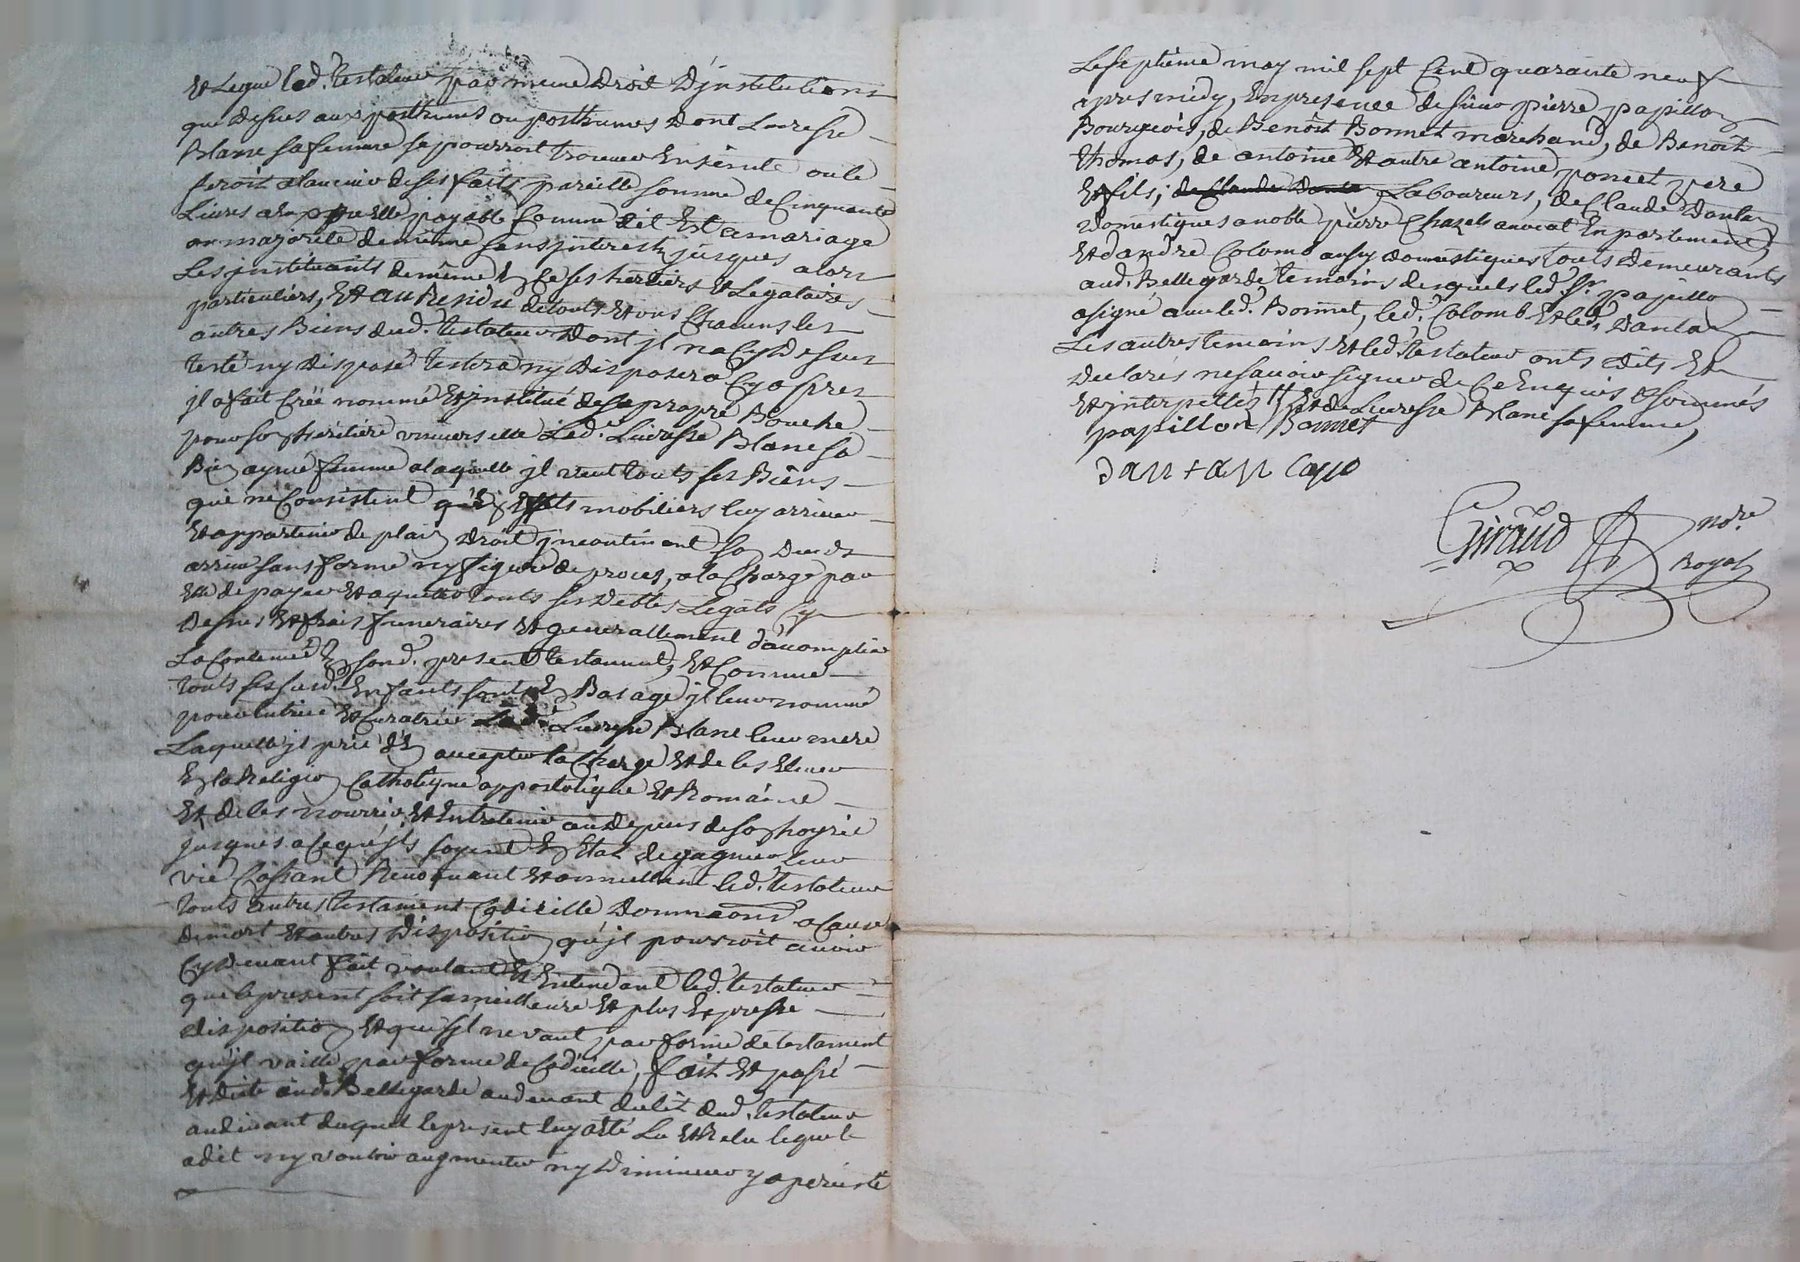 Et Legue led. testateur par meme Droit D'jnstitutions
que dessus aux posthumes ou posthumes Dont Lucresse
Blanc sa femme se pourroit trouver Enseinte ou le
seroit alavenir de ses faits pareille somme de Cinquante
Livres a payable Comme dit Est a mariage
ou majorité de même sans jnterest jusques alors
Les jnstituants de même ses heritiers Et Legataires
particuliers, Et au Residu de touts Et uns Chacuns les
autres Biens dud. testateur Dont jl na Cy Dessus
testé ny Disposé testera ny Disposera Cy apres
jl a fait Créé nommé Et jnstitué de sa propre Bouche
pour son heritiere universelle Lad. Lucresse Blanc sa
Bien aymée femme a laquelle jl veut touts ses Biens
que ne Consistent qu'en Effets mobiliers luy arriver
Et appartenir de plain Droit jncontinant son Deceds
arrivé sans forme ny figure de proces, a la Charge par
Elle de payer Et aquitter touts ses Debtes Legats Cy
Dessus Et frais funeraires Et generallement d'acomplir
Le Contenu En sond. present testament, Et Comme
touts sessusd. Enfants sont En Bas age jl leur nomme
pour tutrice Et Curatrice Lad. Lucresse Blanc leur mere
Laquelle jl prie d'En accepter la Charge Et de les Elever
En la Religion Catholique appostolique Et Romaine
Et de les nourrir Et Entretenir au Depens de son hoyrie
jusques a Ce qu'jls soyent En Etat de gagner leur
vie Cassant Revoquant Et annullant led. testateur
touts autres testament Codicille Donna[ti]ons a Cause
de mort Et autres Disposition qu'jl pourroit avoir
Cy Devant fait voulant Et Entendant led. testateur
que le present soit sa meilleure Et plus Expresse
disposition Et que s'jl ne vaut par forme de testament
qu'jl vaille par forme de Codicille, fait Et passé
Et dicté aud. Bellegarde au devant du lit dud. testateur
au divant duquel le present luy a été Lu Et Relu lequel
a dit ny vouloir augmenter ny Diminuer y a persisté
Le septième may mil sept Cent quarante neuf
apres midy, En presence de sieur pierre papillon
Bourgeois, de Benoît Bonnet marchand, de Benoit
thomas, de antoine Et autre antoine poncet pere
Et fils, de Claude Danta Laboureurs, de Claude Dantan
Domestiques a noble pierre Chazel avocat En parlement,
Et d'andré Colomb aussy Domestiques touts Demeurants
aud. Bellegarde temoins desquels led. Sr. papillon
a signé avec led. Bonnet, led. Colomb Et led. Dantan
Les autres temoins Et led. testateur onts dits Et
Declarés ne savoir signer de Ce Enquis Et sommés
Et jnterpellés Et de Lucresse Blanc sa femme,
papillon Bonnet
dantan
Giraud nore.
Royal